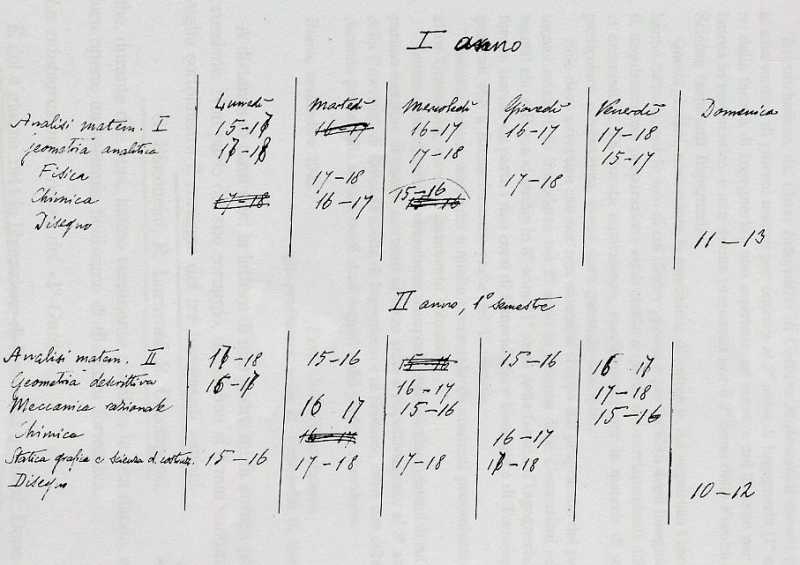 I anno
Lunedì Martedì Mercoledì Giovedì Venerdì Domenica
Analisi matem. I 15-17 16-17 16-17 16-17 17-18
geometria analitica 17-18 17-18 15-17
Fisica 17-18 17-18
Chimica 17-18 16-17 15-16
Disegno 11-13
II anno, 1° semestre
Analisi matem. II 17-18 15-16 15-16 15-16 16 17
Geometria descrittiva 16-17 16-17 17-18
Meccanica razionale 16 17 15-16 15-16
Chimica 16-17 16-17
Statica grafica e scienza d. costruz. 15-16 17-18 17-18 17-18
Disegno 10-12